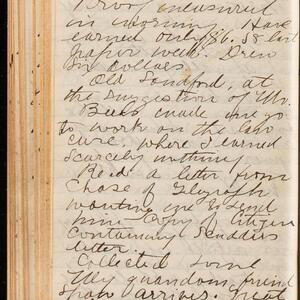 Proof measured
in morning. Have
earned only $6.58 last
paper week. Drew
six dollars.
Old Sandford, at
the suggestion of Mr.
Beels made me go
to work on the law
case, where I earned
scarcely nothing
Rec'd a letter from
Chase of Telegraph
wanting me to send
him copy of Citizen
containing Scudders
letter.
Collected some
My quondam friend
Shaw arrives.